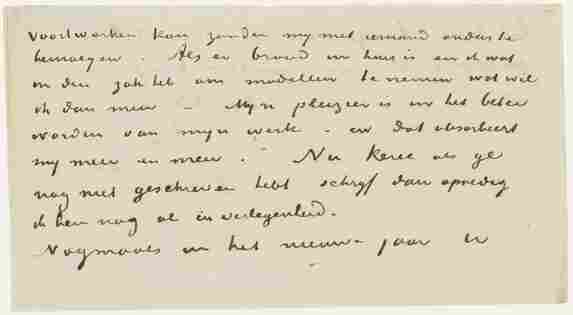 voortwerken kan zonder my met iemand anders te
bemoeyen. Als er brood in huis is en ik wat
in den zak heb om modellen te nemen wat wil
ik dan meer – Myn pleizier is in het beter
worden van myn werk – en dat absorbeert
my meer en meer. Nu kerel als ge
nog niet geschreven hebt schryf dan spoedig
ik ben nog al in verlegenheid.
Nogmaals in het nieuwe jaar